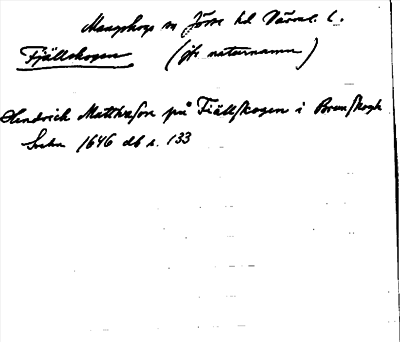 Mangskogs sn Jösse hd Värml. l.
Fjällskogen (jfr naturnamn)
Hendrich Matthesson på Fiällskogen i Brunskogh
Sochn 1646 db s. 133